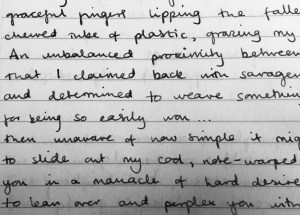 graceful fingers lipping the falle
chewed tube of plastic, grazing my
An unbalanced proximity between
that I claimed back with savagen
and determined to weave somethin
for being so easily won...
Then unaware of how simple it mig
to slide out my cool, note-warped
you in a manacle of hard desire
to lean over and perplex you with